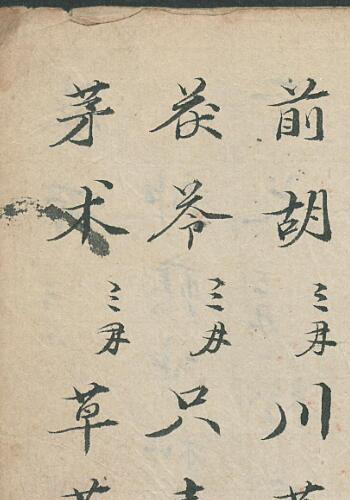 前胡三毋川
茯苓三毋只
茅术三毋草